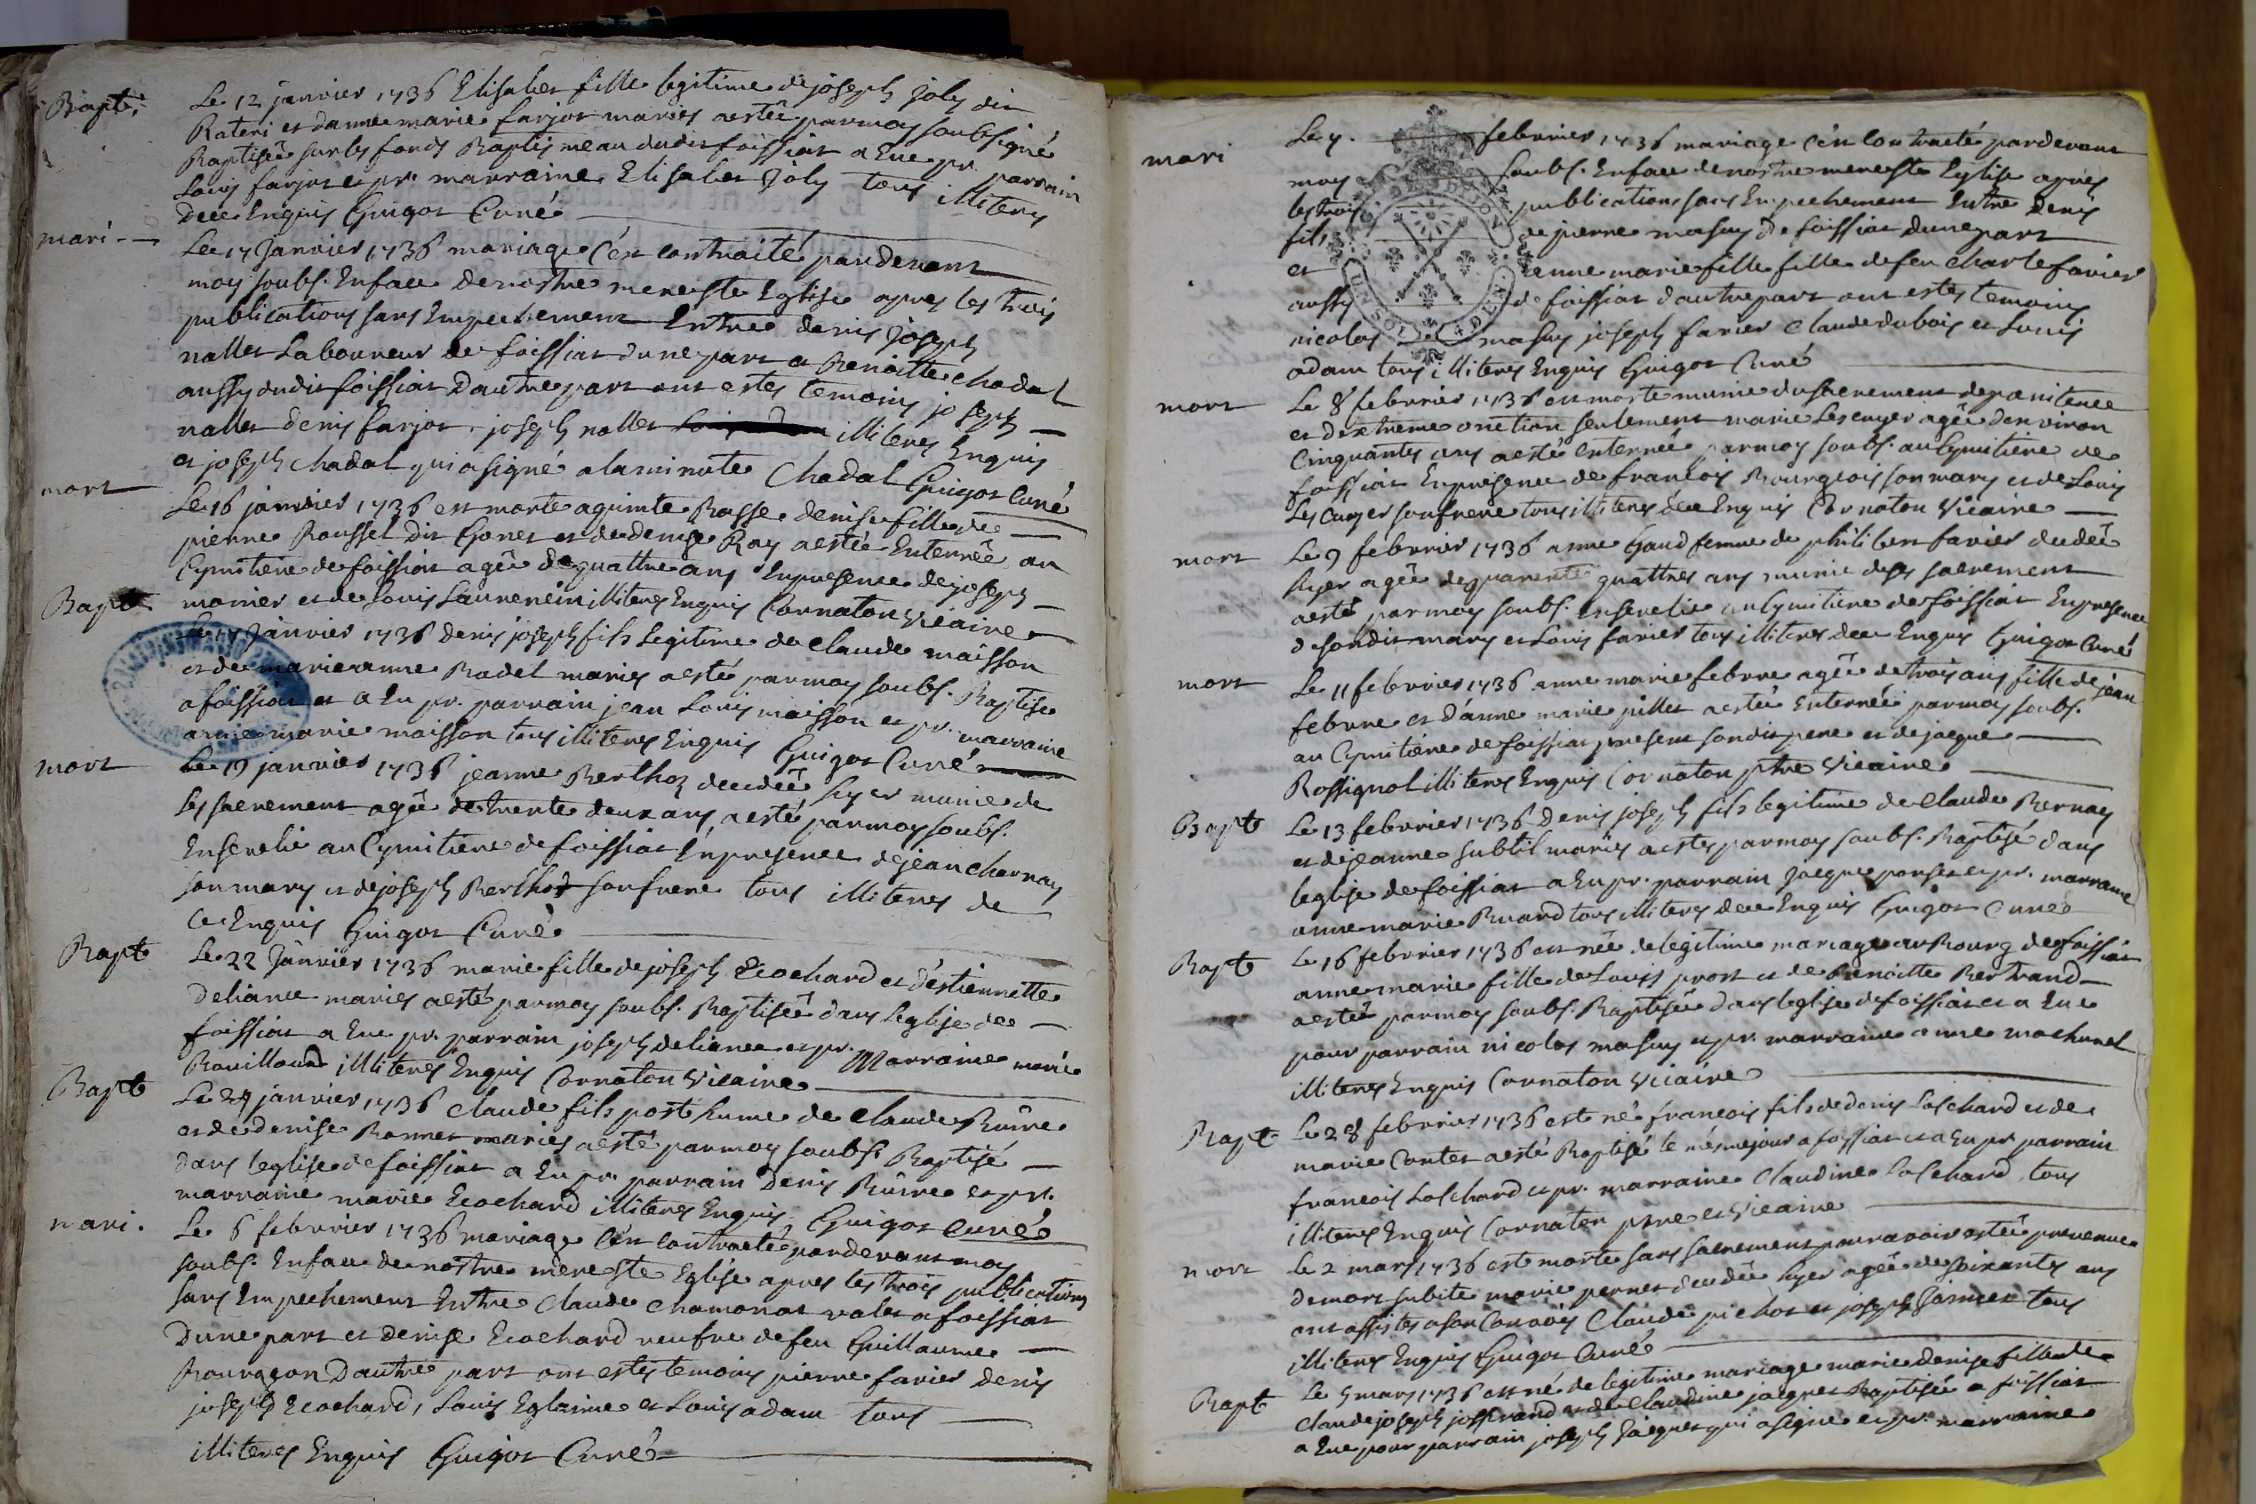 Bapt.
Le 12 janvier 1736 Elisabet fille legitime de joseph joly dit
Rateri et danne marie farjot mariés a estée par moy soubsigné
Baptisée sur les fonds Baptismeau dudit foissiat a Eue pr. parrain
Louis farjot et pr. marraine Elisabet Joly tous illiteres
dece Enquis Guigot Curé
mari
Le 17 Janvier 1736 mariage c'est contraité pardevant
moy soubs. Enface denostre mere Ste Eglise apres les trois
publications sans Empechement Entre denis joseph
nallet Laboureur de foissiat dune part a Benoitte chadal
aussy dudit foissiat Dautre part ont estes temoins joseph
nallet denis farjot, joseph nallet illiteres Enquis
et joseph chadal qui a signé a la minute Chadal Guigot Curé
mort
Le 16 janvier 1736 est morte a quinte Basse denise fille de
pierre Roussel dit Gonet et de denise Ray a estée Enterrée au
Cymitiere de foissiat agée de quattre ans Enpresence de joseph
monier et de Louis Laurencin illiteres Enquis Cornaton Vicaire
Bapt
Le 17 Janvier 1736 denis joseph fils Legitime de Claude maisson
et de marie anne Radel mariés a esté par moy soubs. Baptise
a foissiat et a Eu pr. parrain jean Louis maisson et pr. marraine
anne marie maisson tous illiteres Enquis Guigot Curé
mort
Le 19 janvier 1736 jeanne Berthoz decedée hyer munie de
ses sacrement agée de trente deux ans, a esté par moy soubs.
Ensevelie au Cymitiere de foissiat Enpresence de jean charnay
son mary et de joseph Berthod son frere tous illiteres de
ce Enquis Guigot Curé
Bapt
Le 22 Janvier 1736 marie fille de joseph Ecochard et d'estiennette
deliance mariés a esté par moy soubs. Baptisée dans Leglise de
foissiat a Eue pr. parrain joseph deliance et pr. Marraine marie
Rouilloud illiteres Enquis Cornaton Vicaire
Bapt
Le 24 janvier 1736 Claude fils postHume de Claude Rûire
et de denise Bonnet mariés a esté par moy soubs. Baptisé
dans leglise de foissiat a Eu pr. parrain Denis Rûire et pr.
marraine marie Ecochard illiteres Enquis Guigot Curé
mari.
Le 6 febvrier 1736 mariage c'est contracté pardevant moy
soubs. Enface de nostre mere Ste Eglise apres les trois publications
sans Empechement Entre Claude Chamonat valet a foissiat
Dune part et denise Ecochard veufve de feu Guillaume
Bourgeon Dautre part ont estes temoins pierre favier denis
joseph Ecochard, Louis Eglaine et Louis adam tous
illiteres Enquis Guigot Curé
mari
Le 7. febvrier 1736 mariage c'est contracté pardevant
moy soubs. Enface denostre mere Ste Eglise apres
les trois publications sans Empechement Entre Denis
fils de pierre masuy de foissiat dune part
et anne marie fille fille de feu charle favier
aussy de foissiat dautre part ont estes temoins
nicolas masuy joseph favier Claude dubois et Louis
adam tous illiteres Enquis Guigot Curé
mort
Le 8 febvrier 1736 est morte munie du sacrement de penitence
et dextreme onction seulement marie Lescuyer agée denviron
Cinquantes ans a estée enterrée par moy soubs. au Cymitiere de
foissiat Enpresence de francois Bourgeois son mary et de Louis
Lescuyer son frere tous illiteres dece Enquis Cornaton Vicaire
mort
Le 9 febvrier 1736 anne Gaud femme de philibert favier decedée
hyer agée de quarente quattres ans munie de ses sacrement
a esté par moy soubs. ensevelie au Cymitiere de foissiat Enpresence
de sondit mary et Louis favier tous illiteres dece Enquis Guigot Curé
mort
Le 11 febvrier 1736 anne marie febvre agée de trois ans fille de jean
febvre et d'anne marie pillet a estée Enterrée par moy soubs.
au Cymitiere de foissiat present sondit pere et de jacque
Rossignol illiteres Enquis Cornaton ptre Vicaire
Bapt
Le 13 febvrier 1736 Denis joseph fils legitime de Claude Bernay
et de jeanne subtil mariés a estes par moy soubs. Baptisé dans
leglise de foissiat a Eu pr. parrain Jacque ponset et pr. marraine
anne marie Buard tous illiteres dece Enquis Guigot Curé
Bapt
Le 16 febvrier 1736 est née de legitime mariage au Bourg de foissiat
anne marie fille de Louis prost et de Benoitte Bertrand
a estée par moy soubs. Baptisée dans leglise de foissiat et a Eue
pour parrain nicolas masuy et pr. marraine anne machurel
illiteres Enquis Cornaton Vicaire
Bapt
Le 28 febvrier 1736 est né francois fils de denis Loschard et de
marie Contet a esté Baptisé le mesme jour a foissiat et a Eu pr. parrain
francois Loschard et pr. marraine Claudine Loschard, tous
illiteres Enquis Cornaton ptre et Vicaire
mort
Le 2 mars 1736 est morte sans sacrement pour avoir estée prevenue
de mort subite marie pernet decedée hyer agée de soixantes ans
ont assistes a son Convoy Claude pichot et joseph Janier tous
illiteres Enquis Guigot Curé
Bapt
Le 5 mars 1736 est né de legitime mariage marie denise fille de
Claude joseph josserand et de Claudine jacquet Baptisée a foissiat
a Eue pour parrain joseph Jacquet qui a signé et pr. marraine